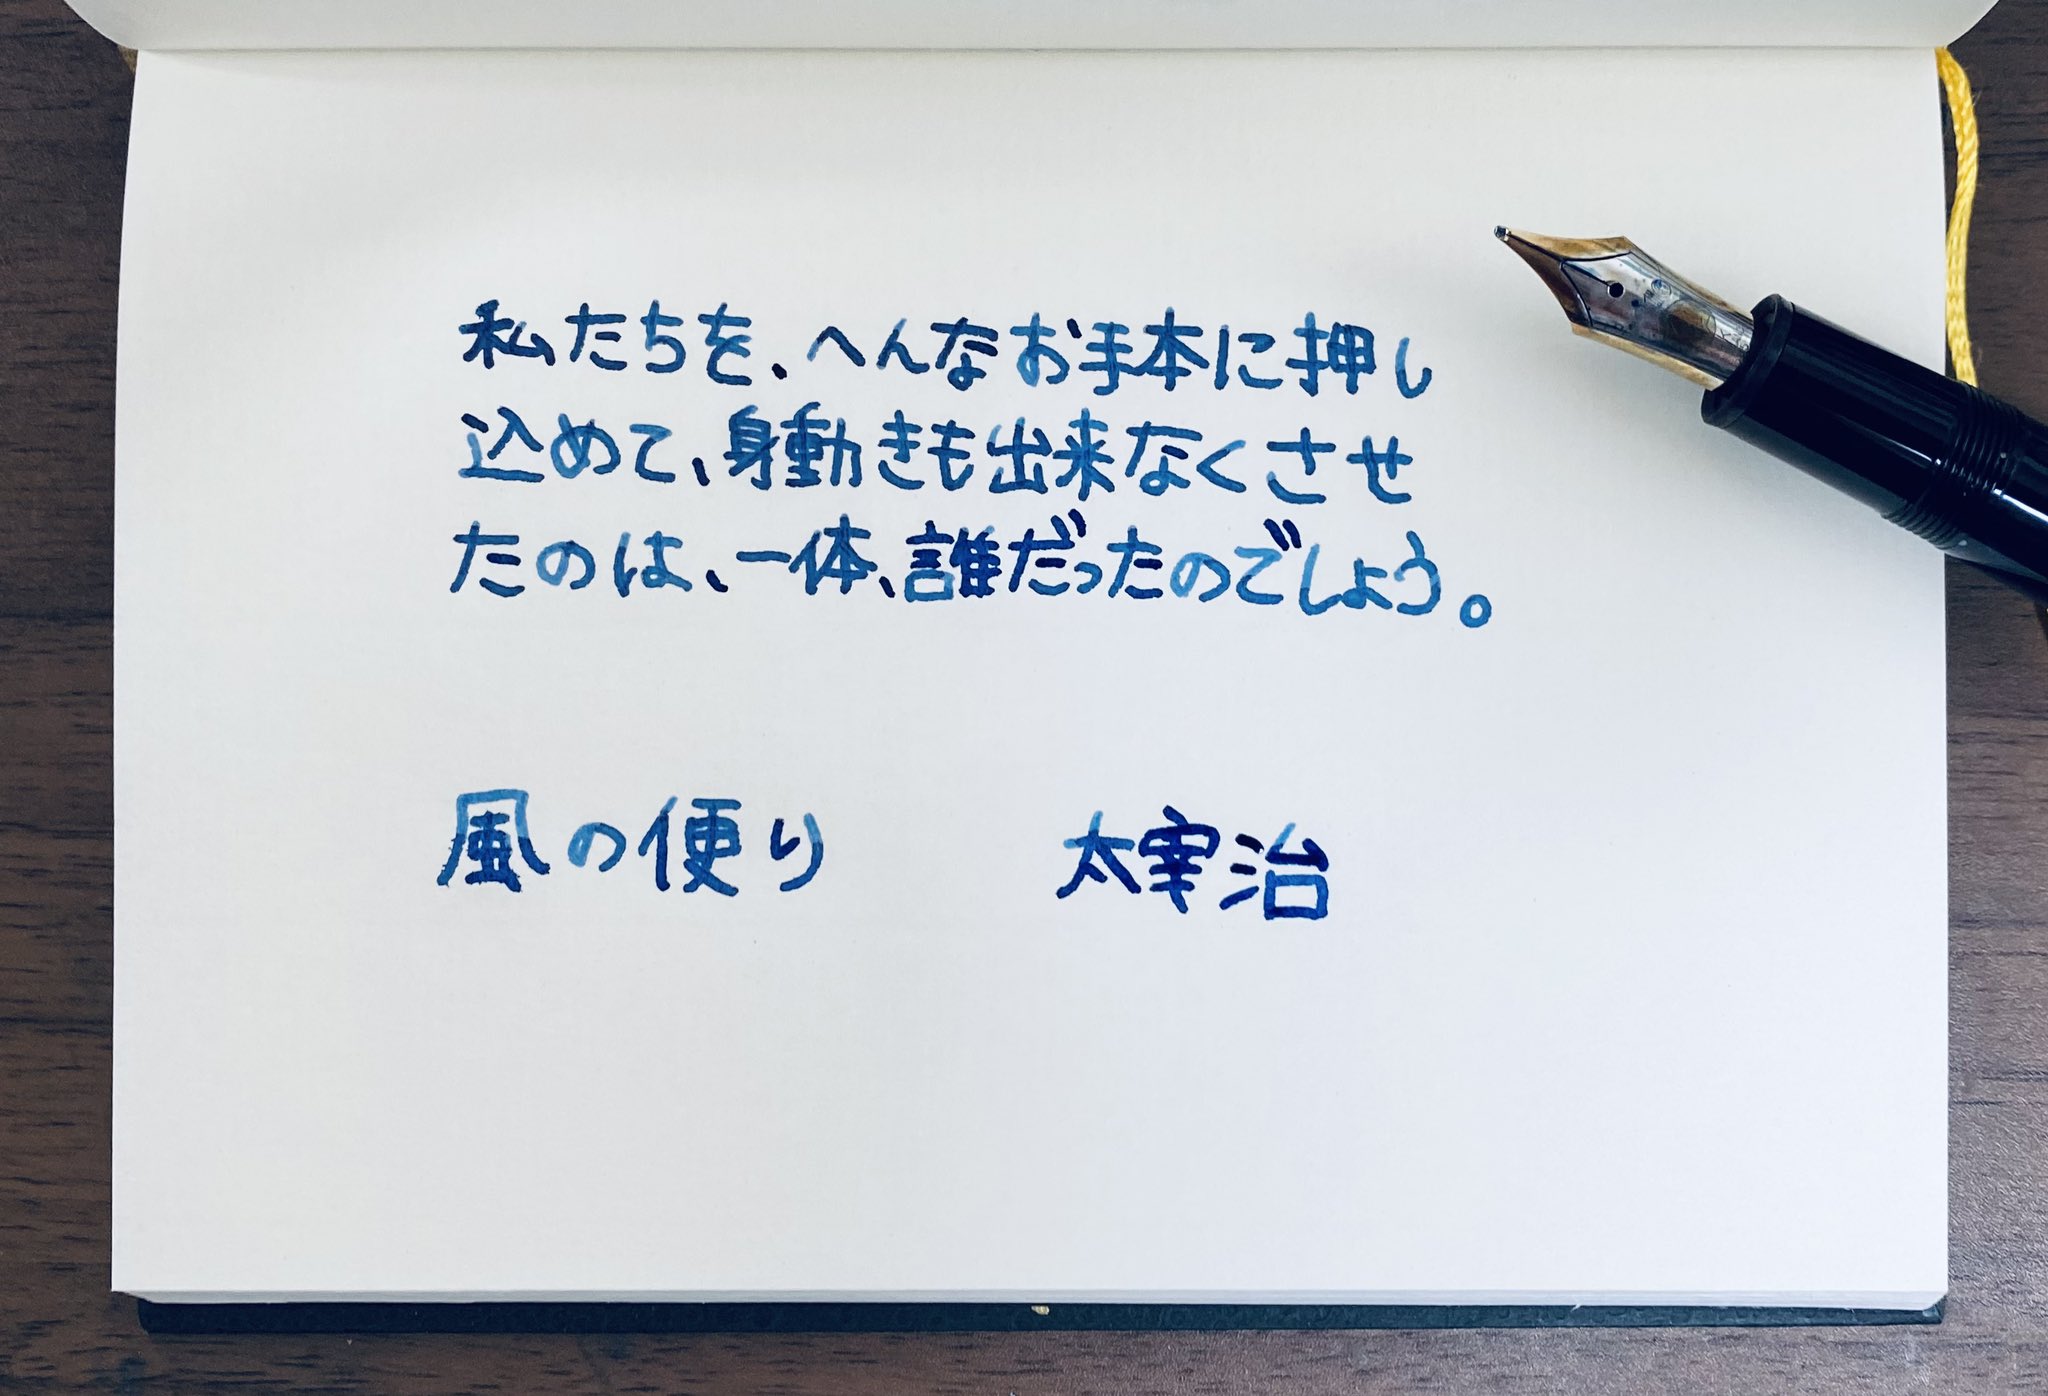 私たちを、へんなお手本に押し
込めて、身動きも出来なくさせ
たのは、一体、誰だったのでしょう。
風の便り 太宰治